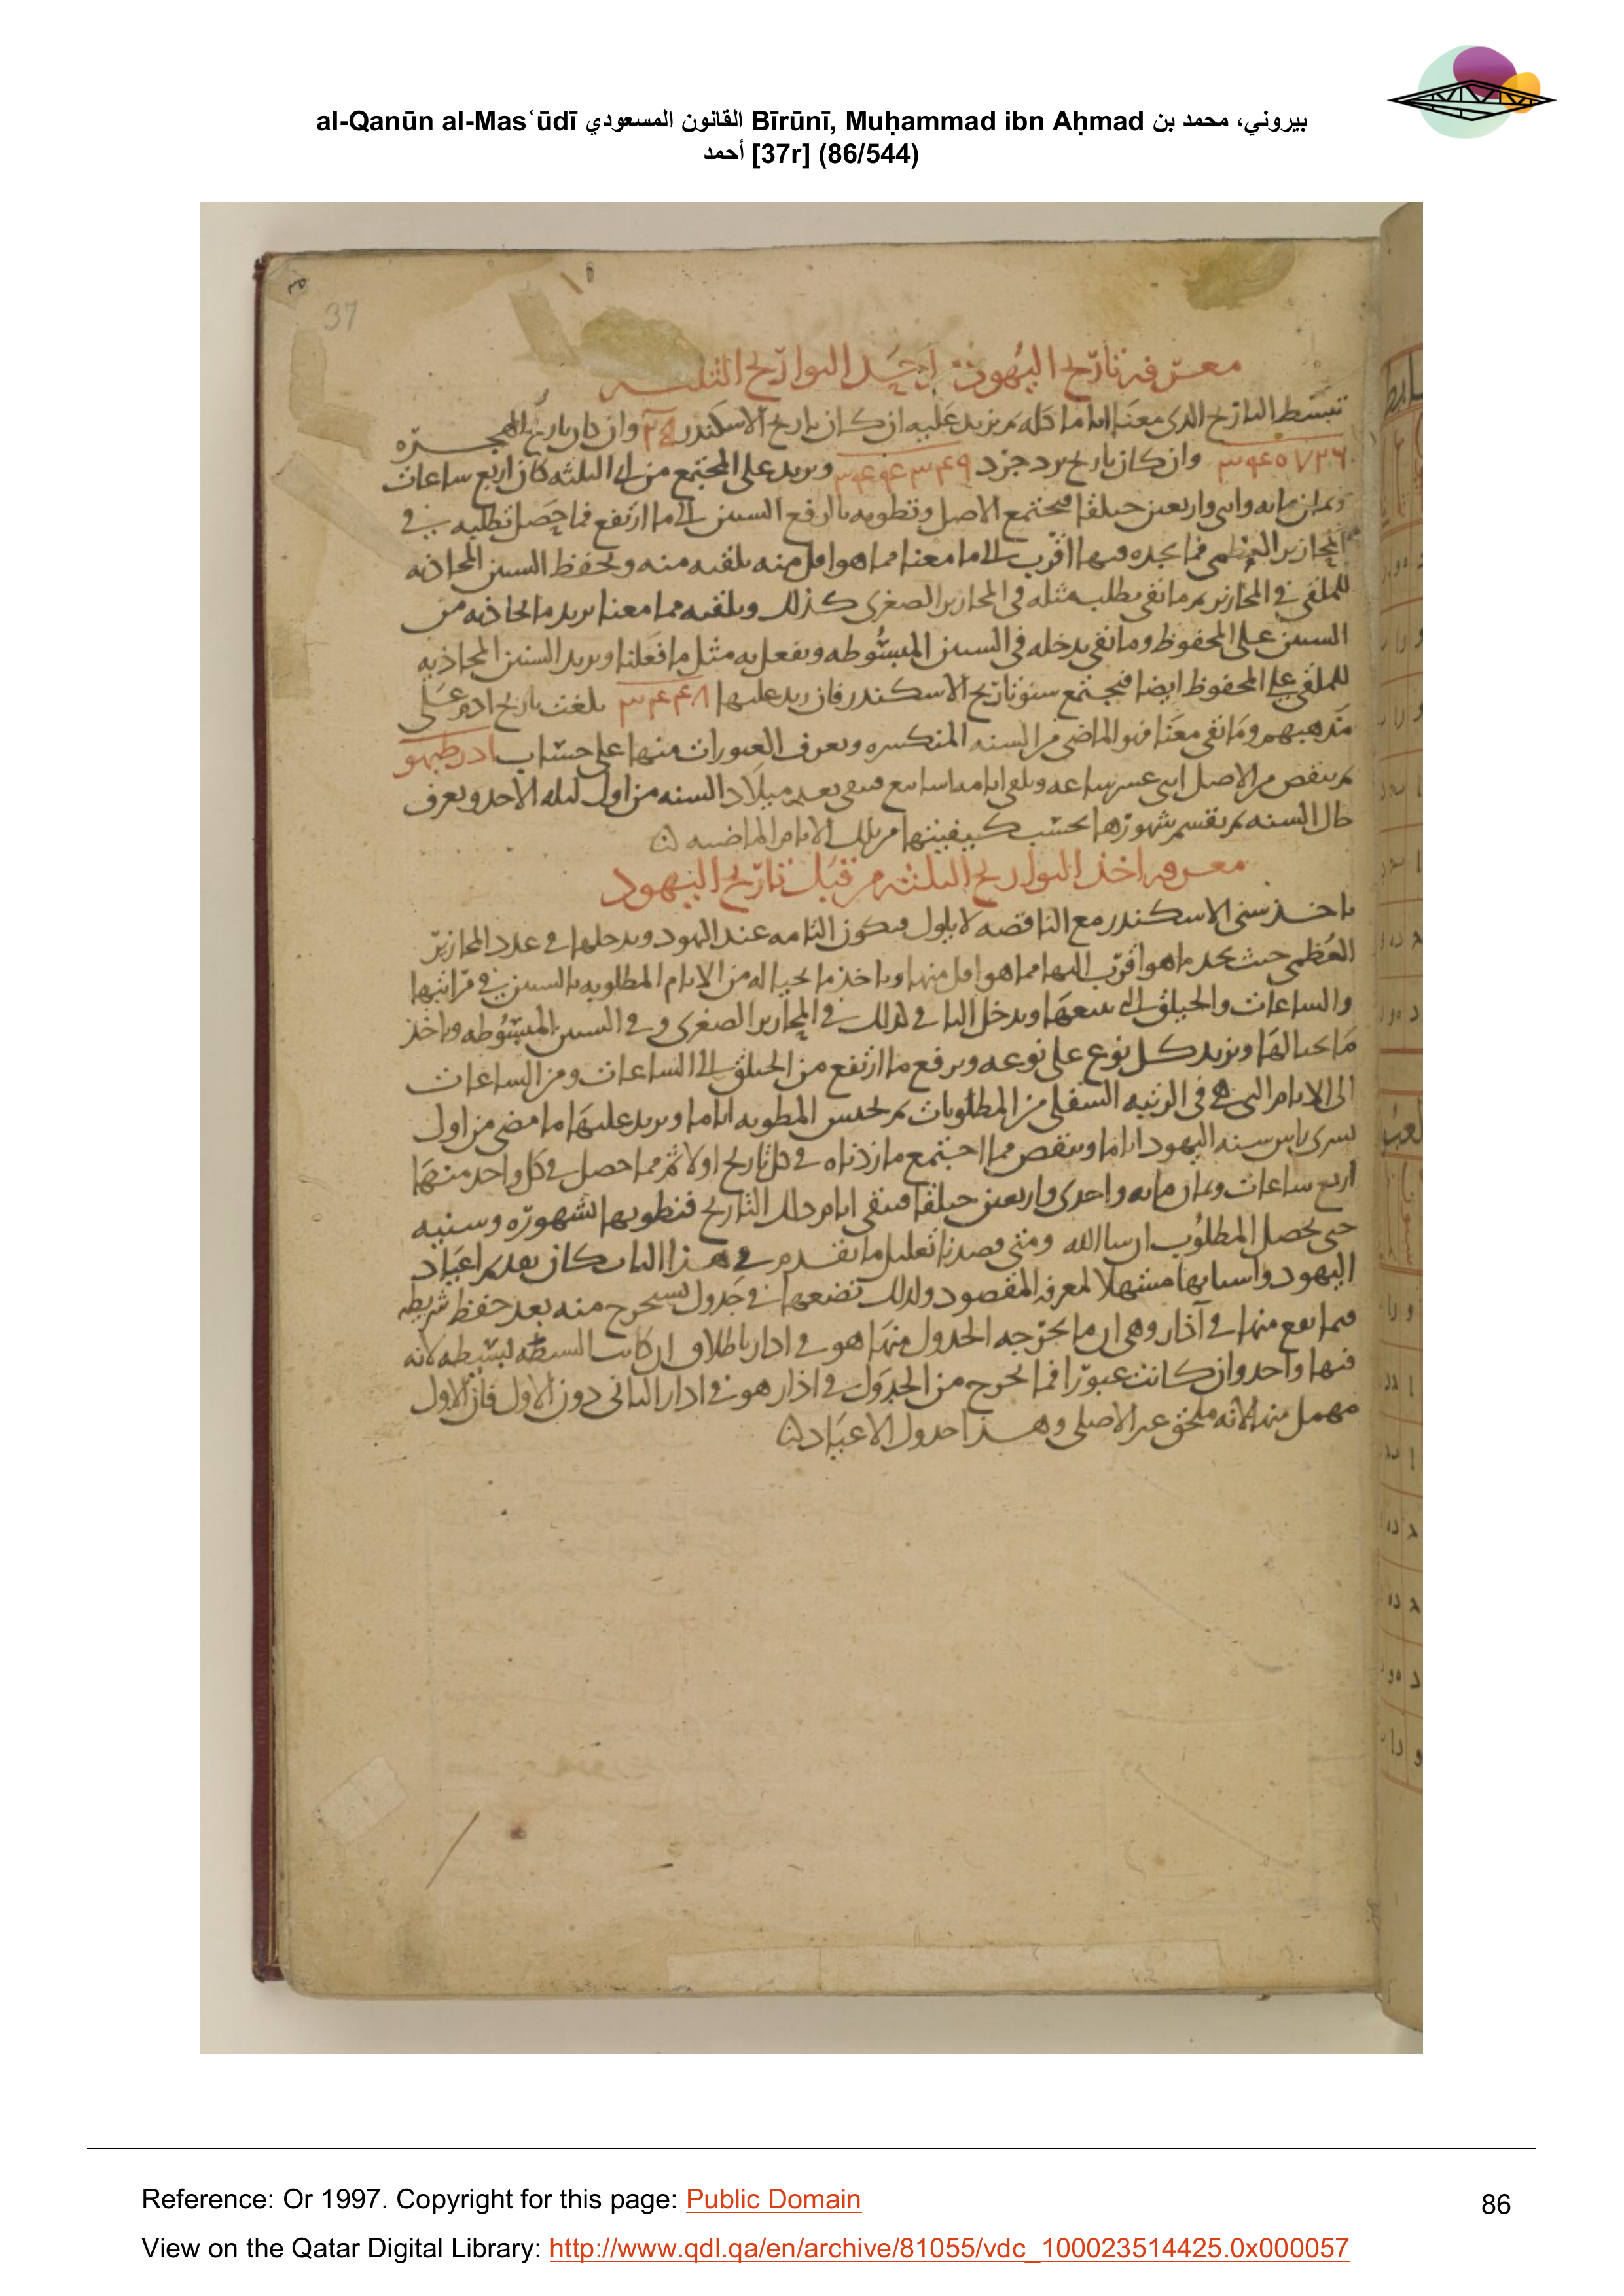 al-Qanūn al-Masʿūdī القانون المسعودي Bīrūnī, Muḥammad ibn Aḥmad بيروني، محمد بن
أحمد [37r] (86/544)
37
معرفة تاريخ اليهود من احد التواريخ الثلثة
نبسط التاريخ الذي معنا اياما كله ثم نزيد عليه ان كان تاريخ الاسكندر وان كان تاريخ الهجرة
٣٤٠٧٢٦ وان كان تاريخ يزدجرد ٣٤٤٣٤٩ ونزيد على المجتمع من اي الثلثة كان اربع ساعات
وثمان مائه واثنى واربعين حيلقا فيجتمع الاصل ونطويه بالرفع الستين الى ما ارتفع فما حصل نطلبه في
المحازير العظمى فما نجده فيها اقرب الى ما معنا مما هو اقل منه نلقيه منه ونحفظ السنين المحاذيه
للملقى في المحازير ثم ما بقي نطلب مثله في المحازير الصغرى كذلك ونلقيه مما معنا نزيد ما يحاذيه من
السنين على المحفوظ وما بقي ندخله في السنين المبسوطه ونفعل به مثل ما فعلنا ونزيد السنين المحاذيه
للملقى على المحفوظ ايضا فيجتمع سنو تاريخ الاسكندر فان زيد عليها ٣٤٤٨ بلغت تاريخ ادم على
مذهبهم وما بقي معنا فهو الماضي من السنه المنكسره ونعرف العبورات منها على حساب ادرطبهو
ثم ننقص من الاصل اثني عشر ساعه ونلقي ايامه اسابيع فيبقى بعد ميلاد السنه من اول ليله الاحد ونعرف
حال السنه ثم نقسم شهورها بحسب كيفيتها من تلك الايام الماضيه
معرفه اخذ التواريخ الثلثه من قبل تاريخ اليهود
ناخذ سنى الاسكندر مع الناقصه لايلول فيكون التامه عند اليهود وندخلها في عدد المحازير
العظمى حيث نجد ما هو اقرب اليها مما هو اقل منها وناخذ ما بحياله من الايام المطلوبه بالستين في مراتبها
والساعات والحيلق التي تتبعها وندخل الباقي كذلك في المحازير الصغرى وفي السنين المبسوطه وناخذ
ما بحيالها ونزيد كل نوع على نوعه ونرفع ما ارتفع من الحيلق الى الساعات ومن الساعات
الى الايام التي هي في الرتبه السفلى من المطلوبات ثم نجنس المطويه اياما ونزيد عليها ما مضى من اول
تسرى راس سنه اليهود اياما وننقص مما اجتمع ما زدناه في كل تاريخ اولا ثم مما حصل في كل واحد منها
اربع ساعات وثمان مائه واحدى واربعين حيلقا فيبقى ايام ذلك التاريخ فنطويها لشهوره وسنيه
حتى يحصل المطلوب ان شا الله ومتى قصدنا تعليل ما تقدم في هذا الباب كان تقديم اعياد
اليهود واسبابها مسهلا لمعرفه المقصود ولذلك نضعها في جدول يستخرج منه بعد حفظ شريطه
فيما يقع منها في آذار وهي ان ما يخرجه الجدول منها هو في اذار باطلاق ان كانت السنه بسيطه لانه
فيها واحد وان كانت عبورا فما يخرج من الجدول في اذار هو في اذار الثاني دون الاول فان الاول
مهمل منها لانه ملحق غير الاصلى وهذا جدول الاعياد
Reference: Or 1997. Copyright for this page: Public Domain
86
View on the Qatar Digital Library: http://www.qdl.qa/en/archive/81055/vdc_100023514425.0x000057